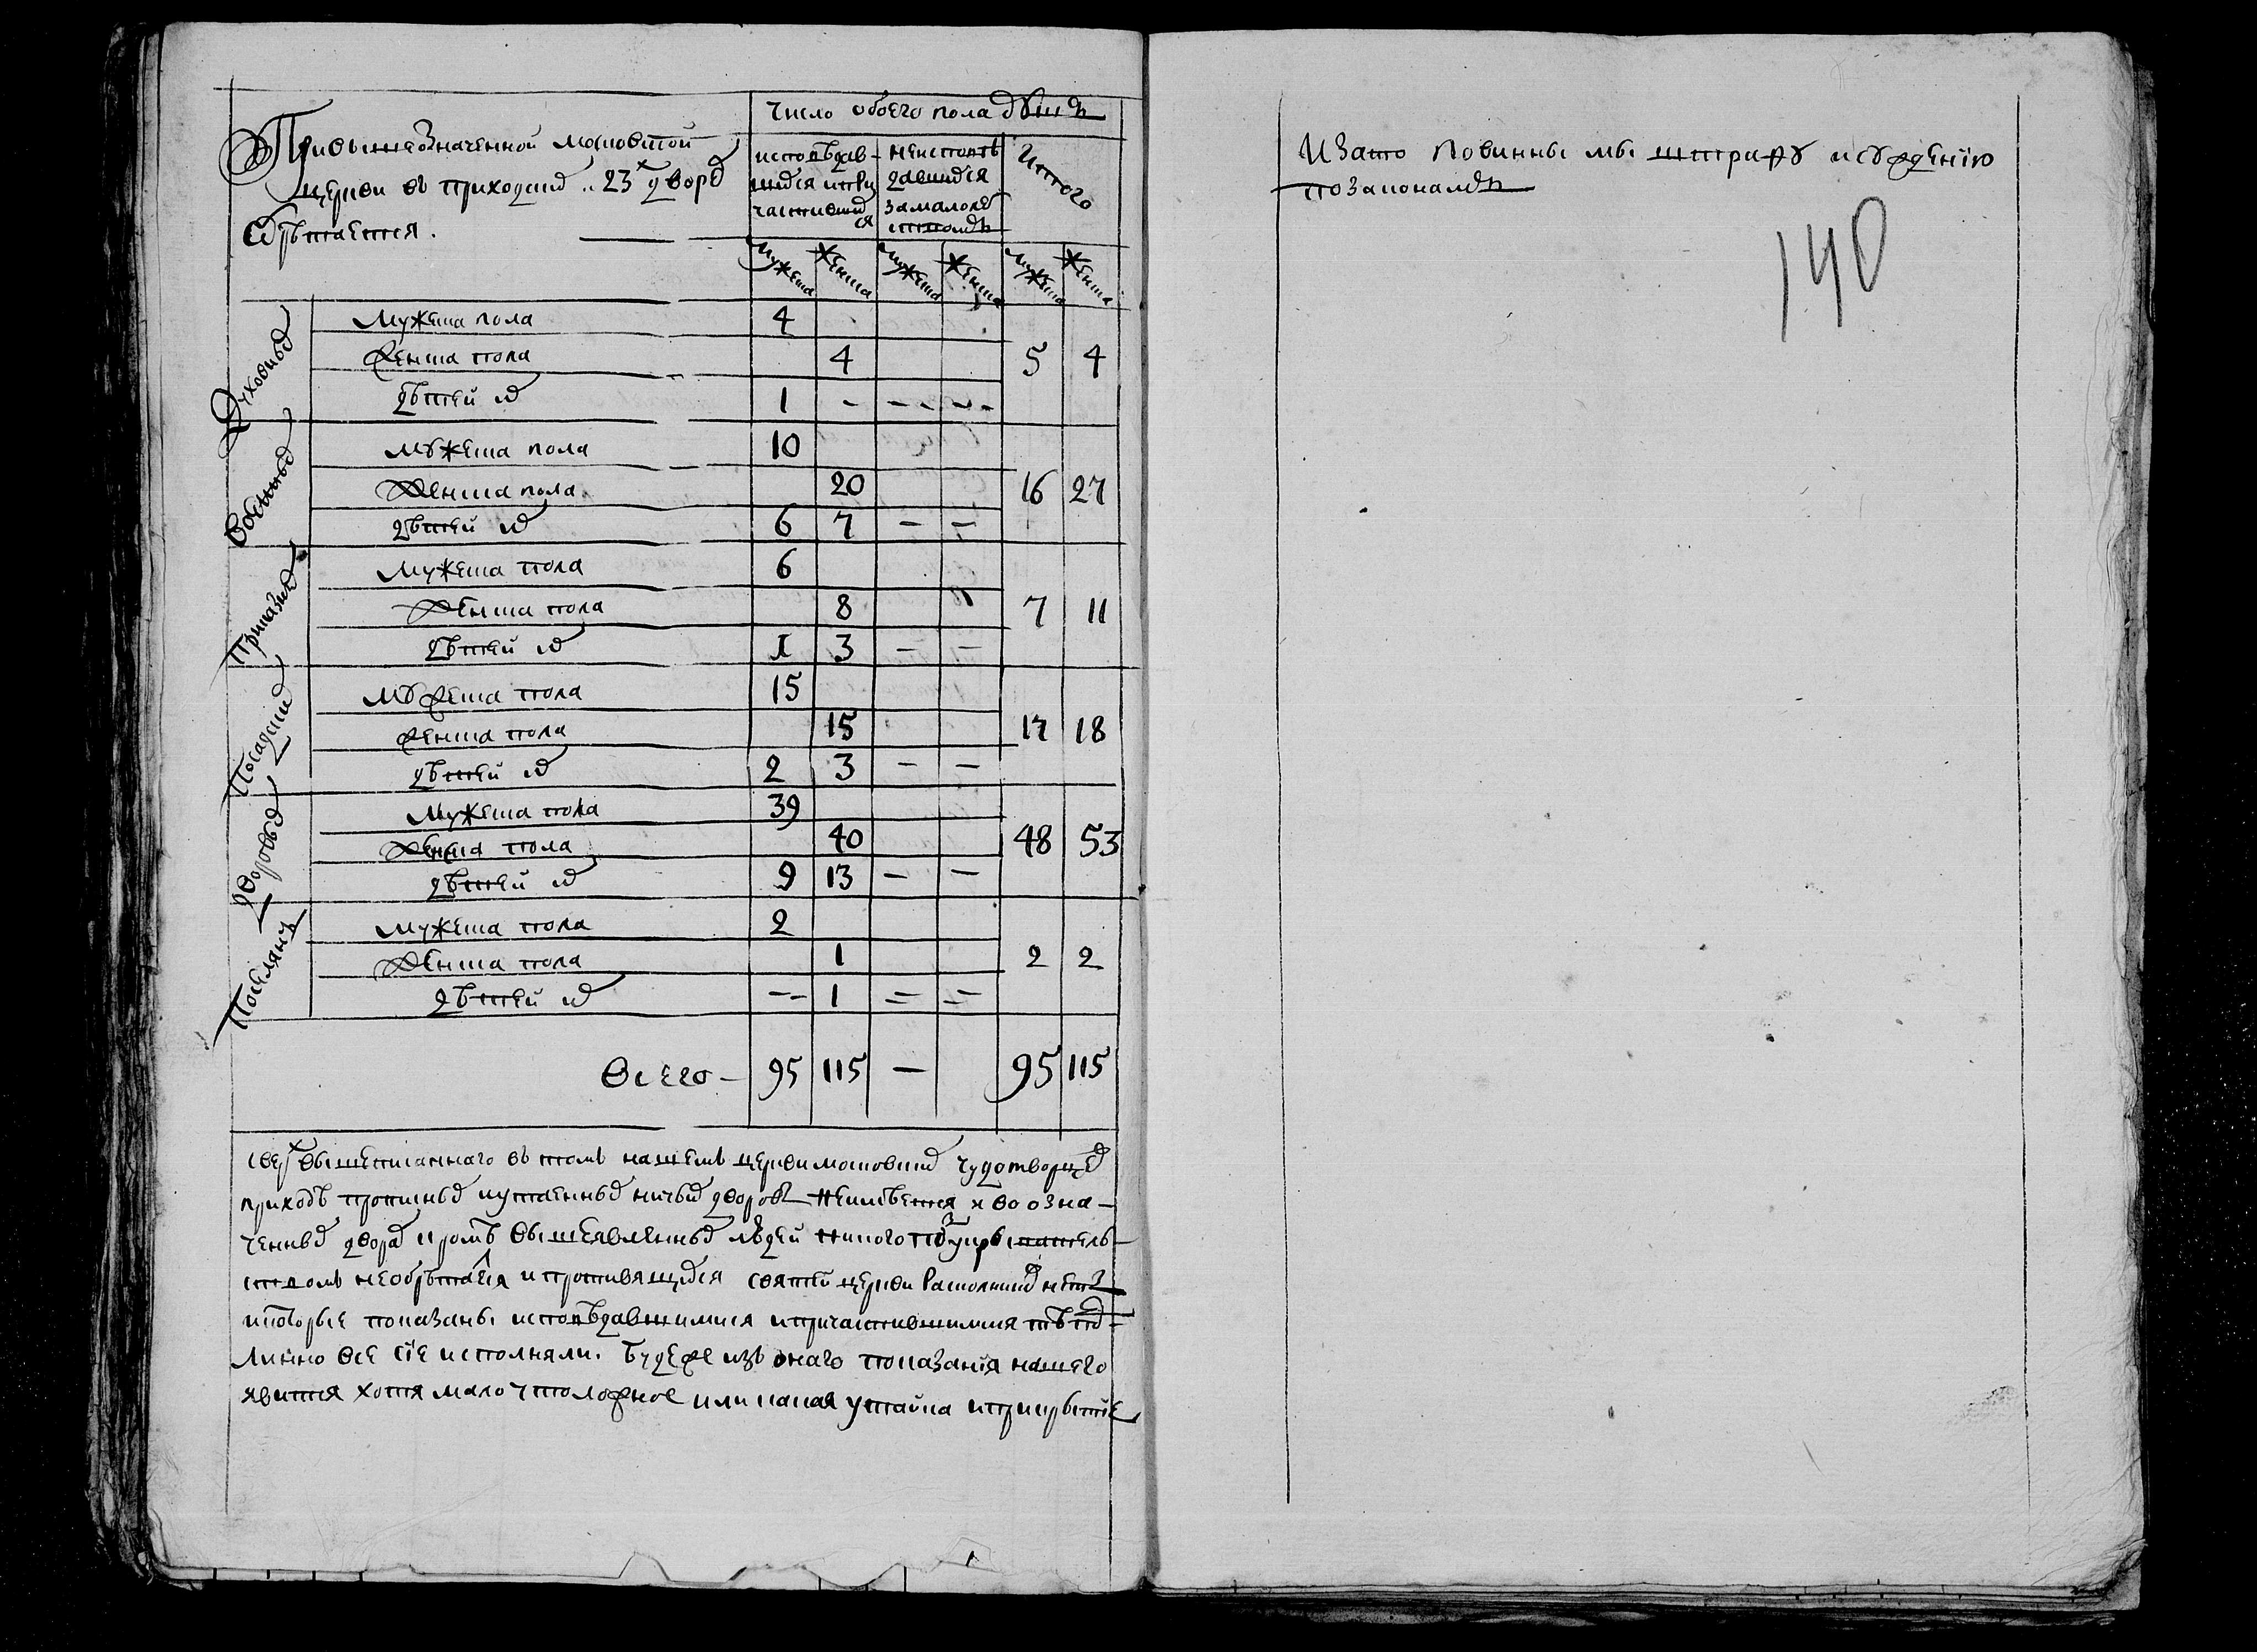 Число обоего пола душъ
Привышеозначенной московской
церкви въ приходских 23х дворѣх
обрѣтается.
исповѣдав-
шихся и при
частивших
ся
неисповѣ
давшихся
за малолѣ
тствомъ
Итого
мужеска женска мужеска женска мужеска женска
Духовных
мужеска пола 4
женска пола 4 5 4
дѣтей их 1 - - - - -
Военных
мужеска пола 10
женска пола 20 16 27
дѣтей их 6 7 - -
Приказных
мужеска пола 6
женска пола 8 7 11
дѣтей их 1 3 - -
Посадских
мужеска пола 15
женска пола 15 17 18
дѣтей их 2 3 - -
Дворовых
мужеска пола 39
женска пола 40 48 53
дѣтей их 9 13 - -
Поселянъ
мужеска пола 2
женска пола 1 2 2
дѣтей их - - 1 = =
Всего - 95 115 - 95 115
сверхъ вышеписаннаго въ томъ нашемъ церкви московских чудотворцев
приходѣ прописных и утаенных ничьих дворовъ неимѣется и во озна-
ченных дворах кромѣ вышеявленных людей никого под укрывательс
ством необрѣтается и противящихся святей церкви раскольников нетъ
которые показаны исповѣдавшимися и причастившимися тѣ под-
линно все сїе исполняли. Буде же изъ онаго показания нашего
явится хотя мало что ложное или какая утайка и прикрытїе
И за то повинны мы штрафу и сужденїю
по законамъ
140